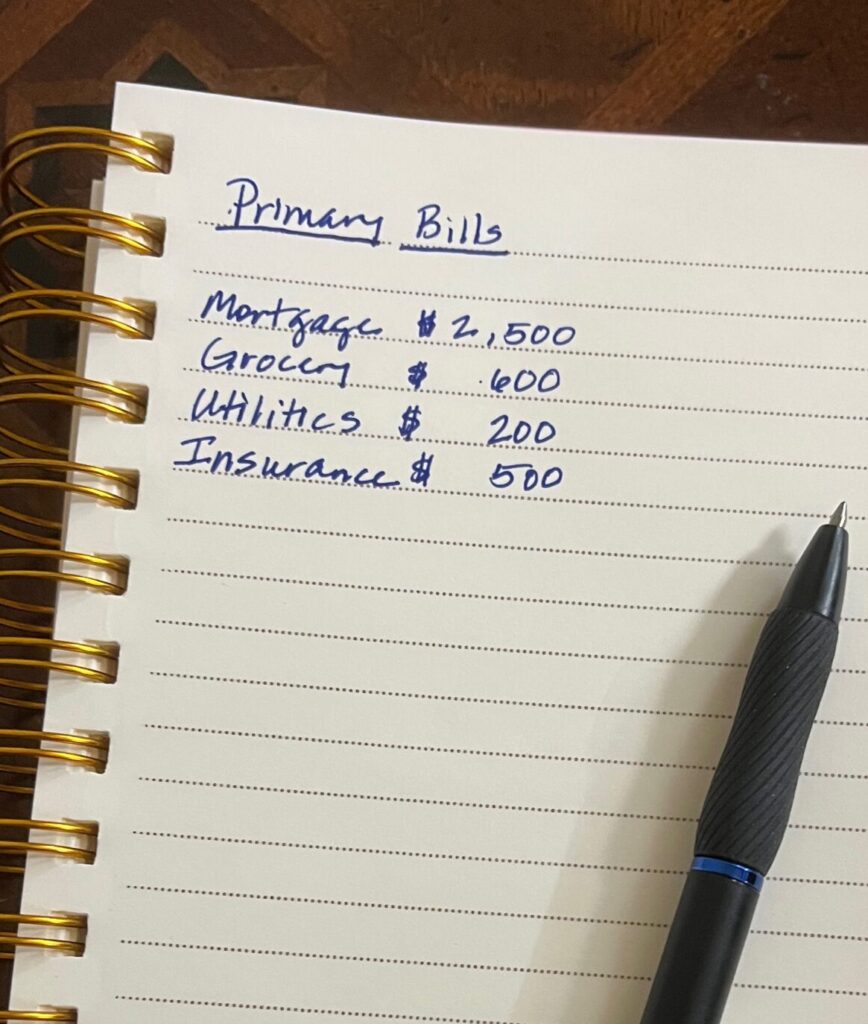 Primary Bills
Mortgage $ 2,500
Grocery $ 600
Utilities $ 200
Insurance $ 500